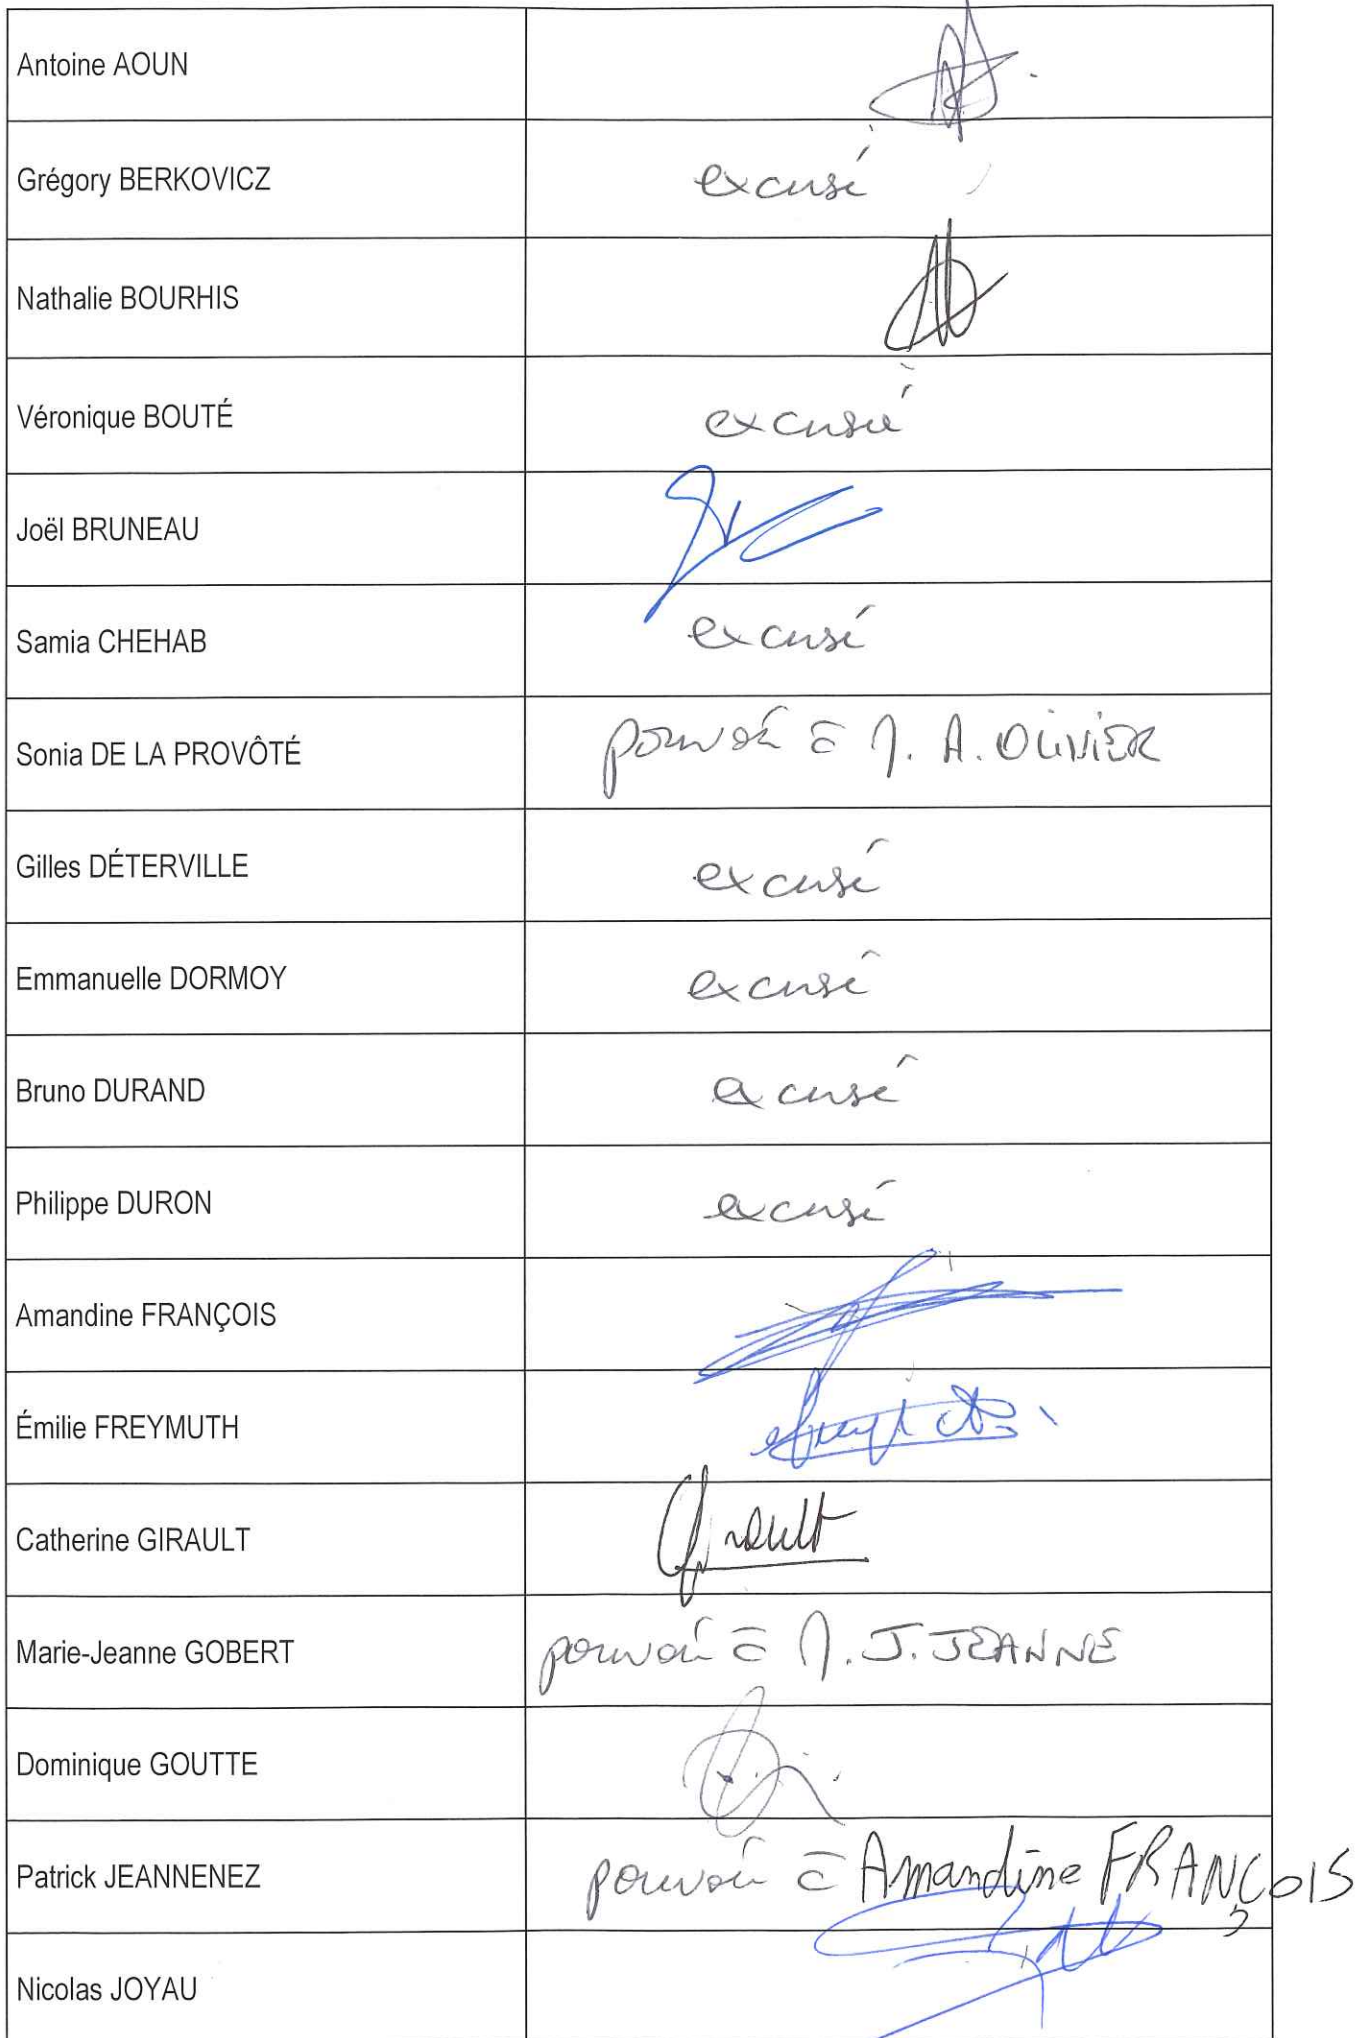 Antoine AOUN
Grégory BERKOVICZ excusé
Nathalie BOURHIS
Véronique BOUTÉ excusé
Joël BRUNEAU
Samia CHEHAB excusé
Sonia DE LA PROVÔTÉ pouvoir à M. A. OLIVIER
Gilles DÉTERVILLE excusé
Emmanuelle DORMOY excusé
Bruno DURAND excusé
Philippe DURON excusé
Amandine FRANÇOIS
Émilie FREYMUTH
Catherine GIRAULT Girault
Marie-Jeanne GOBERT pouvoir à M. J. JEANNE
Dominique GOUTTE
Patrick JEANNENEZ pouvoir à Amandine FRANÇOIS
Nicolas JOYAU